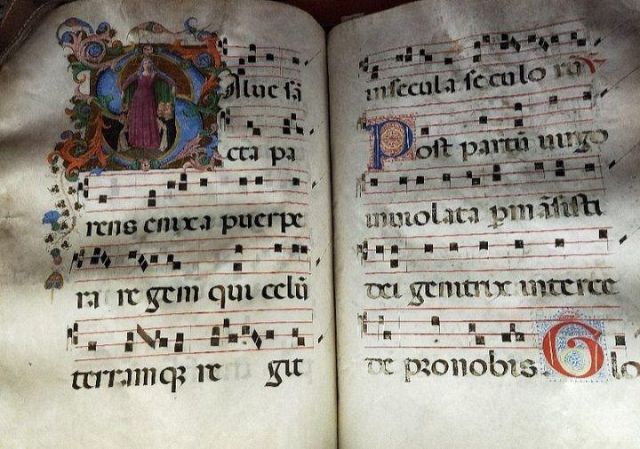 Salue sã
cta pa
rens enixa puerpe
ra regem qui celũ
terramqꝫ re git
in secula seculo rũ
Post partũ uirgo
inuiolata ꝑmãsisti
dei genitrix interce
de pro nobis Glo